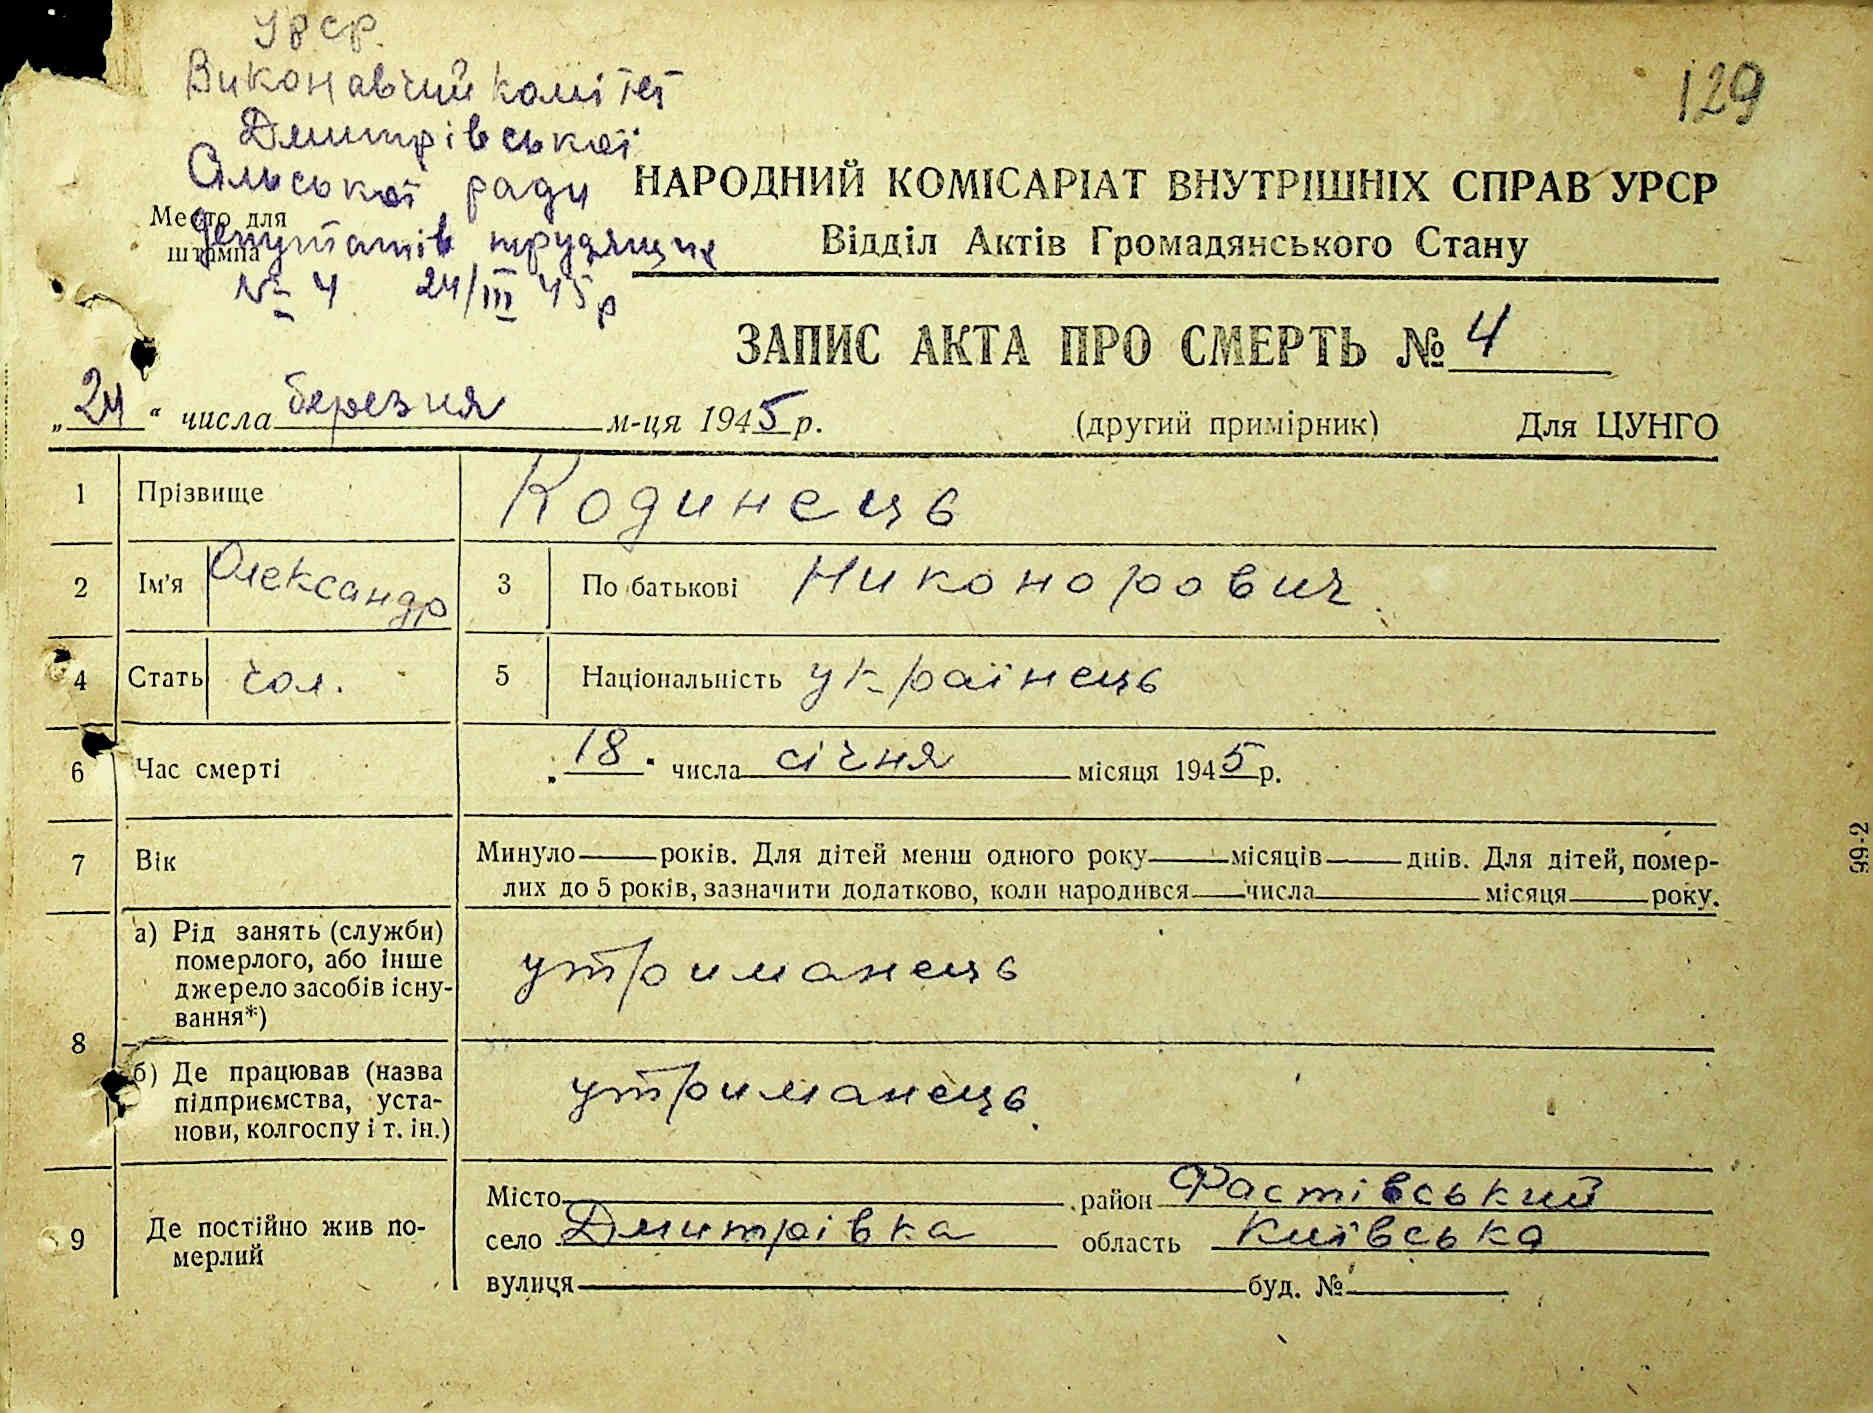 УРСР.
Виконавчий комітет
129
Дмитрівської
Сільської ради
НАРОДНИЙ КОМІСАРІАТ ВНУТРІШНІХ СПРАВ УРСР
Место для штампа
депутатів трудящих
Відділ Актів Громадянського Стану
№ 4 24/III 45 р
ЗАПИС АКТА ПРО СМЕРТЬ № 4
„24“ числа березня м-ця 1945 р. (другий примірник) Для ЦУНГО
1 Прізвище Кодинець
2 Ім'я Олександр 3 По батькові Никонорович
4 Стать чол. 5 Національність українець
6 Час смерті „18“ числа січня місяця 1945 р.
7 Вік Минуло років. Для дітей менш одного року місяців днів. Для дітей, помер-
лих до 5 років, зазначити додатково, коли народився числа місяця року.
8 а) Рід занять (служби)
померлого, або інше
джерело засобів існу-
вання*)
утриманець
б) Де працював (назва
підприємства, уста-
нови, колгоспу і т. ін.)
утриманець
9 Де постійно жив по-
мерлий
Місто район Фастівський
село Дмитрівка область Київська
вулиця буд. №
99-2